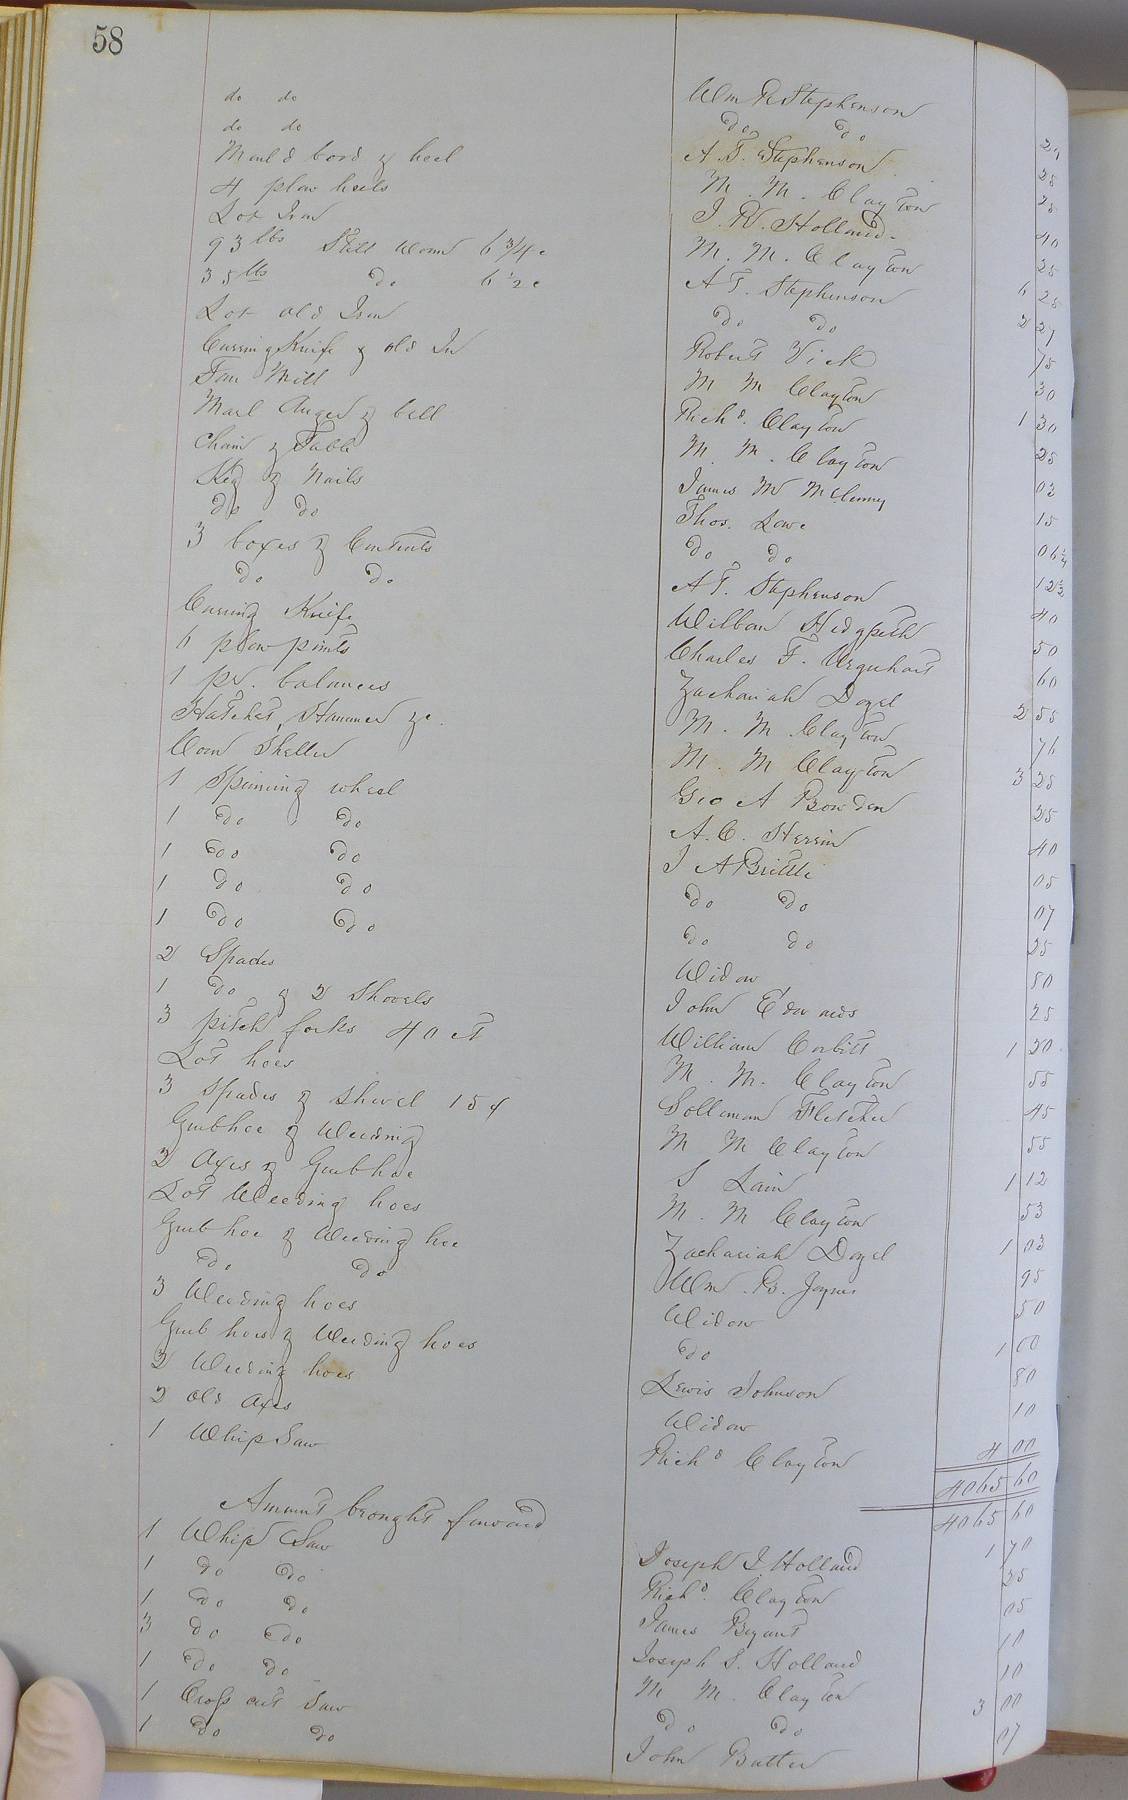 58
do do Wm R Stephenson 25
do do Do Do 25
Mould bord & heel A. T. Stephenson 25
4 plow heels M. M. Clayton 40
Lot Iron J. R. Holland 25
93 lbs Still Worm 6 3/4 c M. M. Clayton 6 28
35 lbs Do 6 1/2 c A T. Stephenson 2 27
Lot old Iron Do Do 75
Curring Knife & old In Robert Vick 30
Fan Mill M M Clayton 1 30
Marl Auger & bell Richd. Clayton 25
Chair & Table M. M. Clayton 03
Keg & Nails James W McClenny 15
Do Do Thos. Lowe 06 1/4
3 boxes & Contents Do Do 12 1/2
Do Do A T. Stephenson 40
Curring Knife Wilban Hidgpeth 50
6 plow points Charles F. Urquhart 60
1 pr. balances Zachariah Doyel 2 55
Hatchet, Hammer &c. M. M. Clayton 76
Corn Sheller M. M Clayton 3 25
1 Spinning wheel Geo A Bowden 25
1 Do Do A. C. Herrin 40
1 Do Do J A Brittle 05
1 Do Do Do Do 07
1 Do Do Do Do 25
2 Spades Widow 50
1 Do & 2 Shovels John Edwards 25
3 pitch forks 40 ct William Corbitt 1 20
Lot hoes M. M. Clayton 55
3 Spades & Shovel 15 ¢ Solleman Fletcher 45
Grubhoe & Weeding M M Clayton 55
2 Axes & Grubhoe S Lain 1 12
Lot Weeding hoes M. M Clayton 53
Grub hoe & Weeding hoe Zachariah Doyel 1 03
Do Do Wm. B. Joyner 95
3 Weeding hoes Widow 50
Grub hoes & Weeding hoes Do 1 00
2 Weeding hoes Lewis Johnson 80
2 old Axes Widow 10
1 Whip Saw Richd Clayton 4 00
4065 60
Amount brought forward 4065 60
1 Whip Saw Joseph J. Holland 1 70
1 Do Do Richd. Clayton 25
1 Do Do James Bryant 05
3 Do Do Joseph S. Holland 10
1 Do Do M M. Clayton 10
1 Cross cut Saw Do Do 3 00
1 Do Do John Butler 07